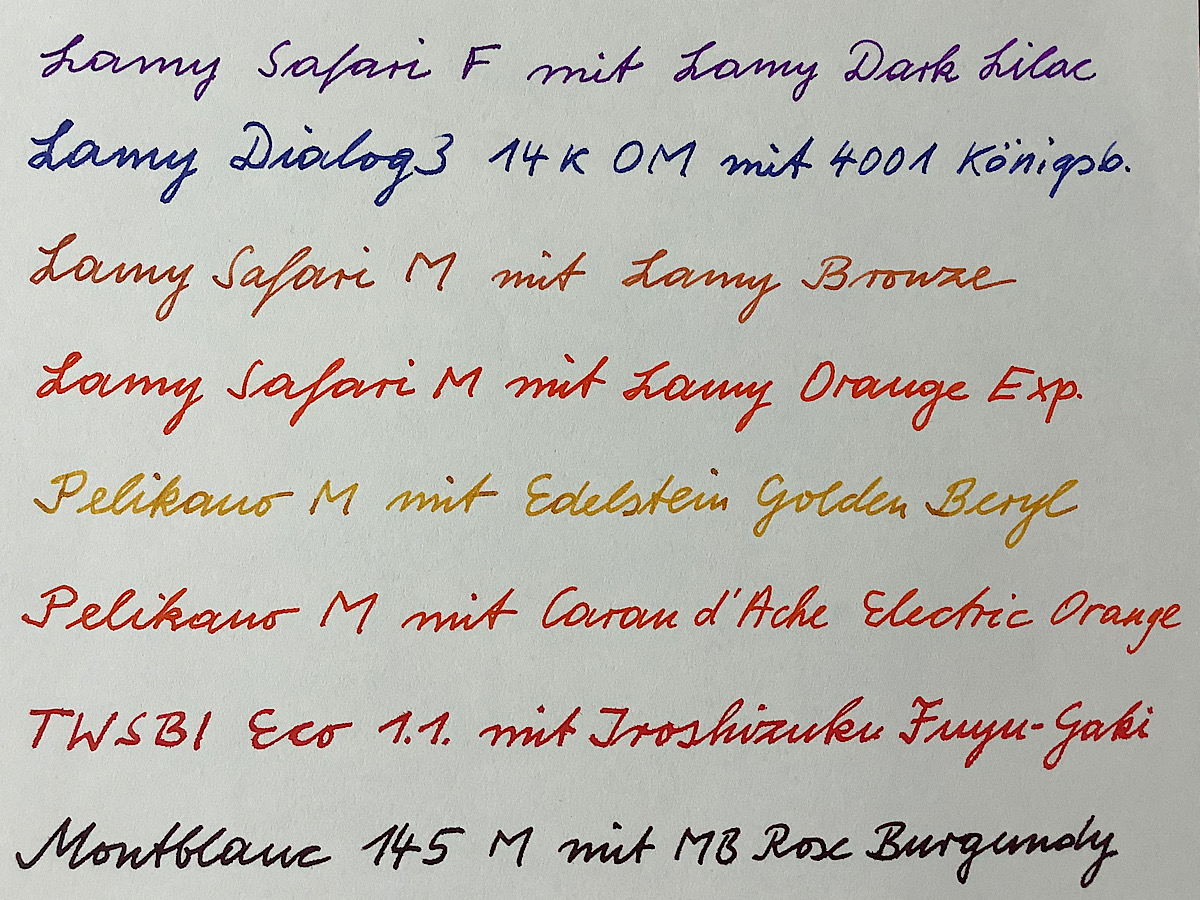 Lamy Safari F mit Lamy Dark Lilac
Lamy Dialog3 14K OM mit 4001 Königsb.
Lamy Safari M mit Lamy Bronze
Lamy Safari M mit Lamy Orange Exp.
Pelikano M mit Edelstein Golden Beryl
Pelikano M mit Caran d'Ache Electric Orange
TWSBI Eco 1.1. mit Iroshizuku Fuyu-Gaki
Montblanc 145 M mit MB Rose Burgundy